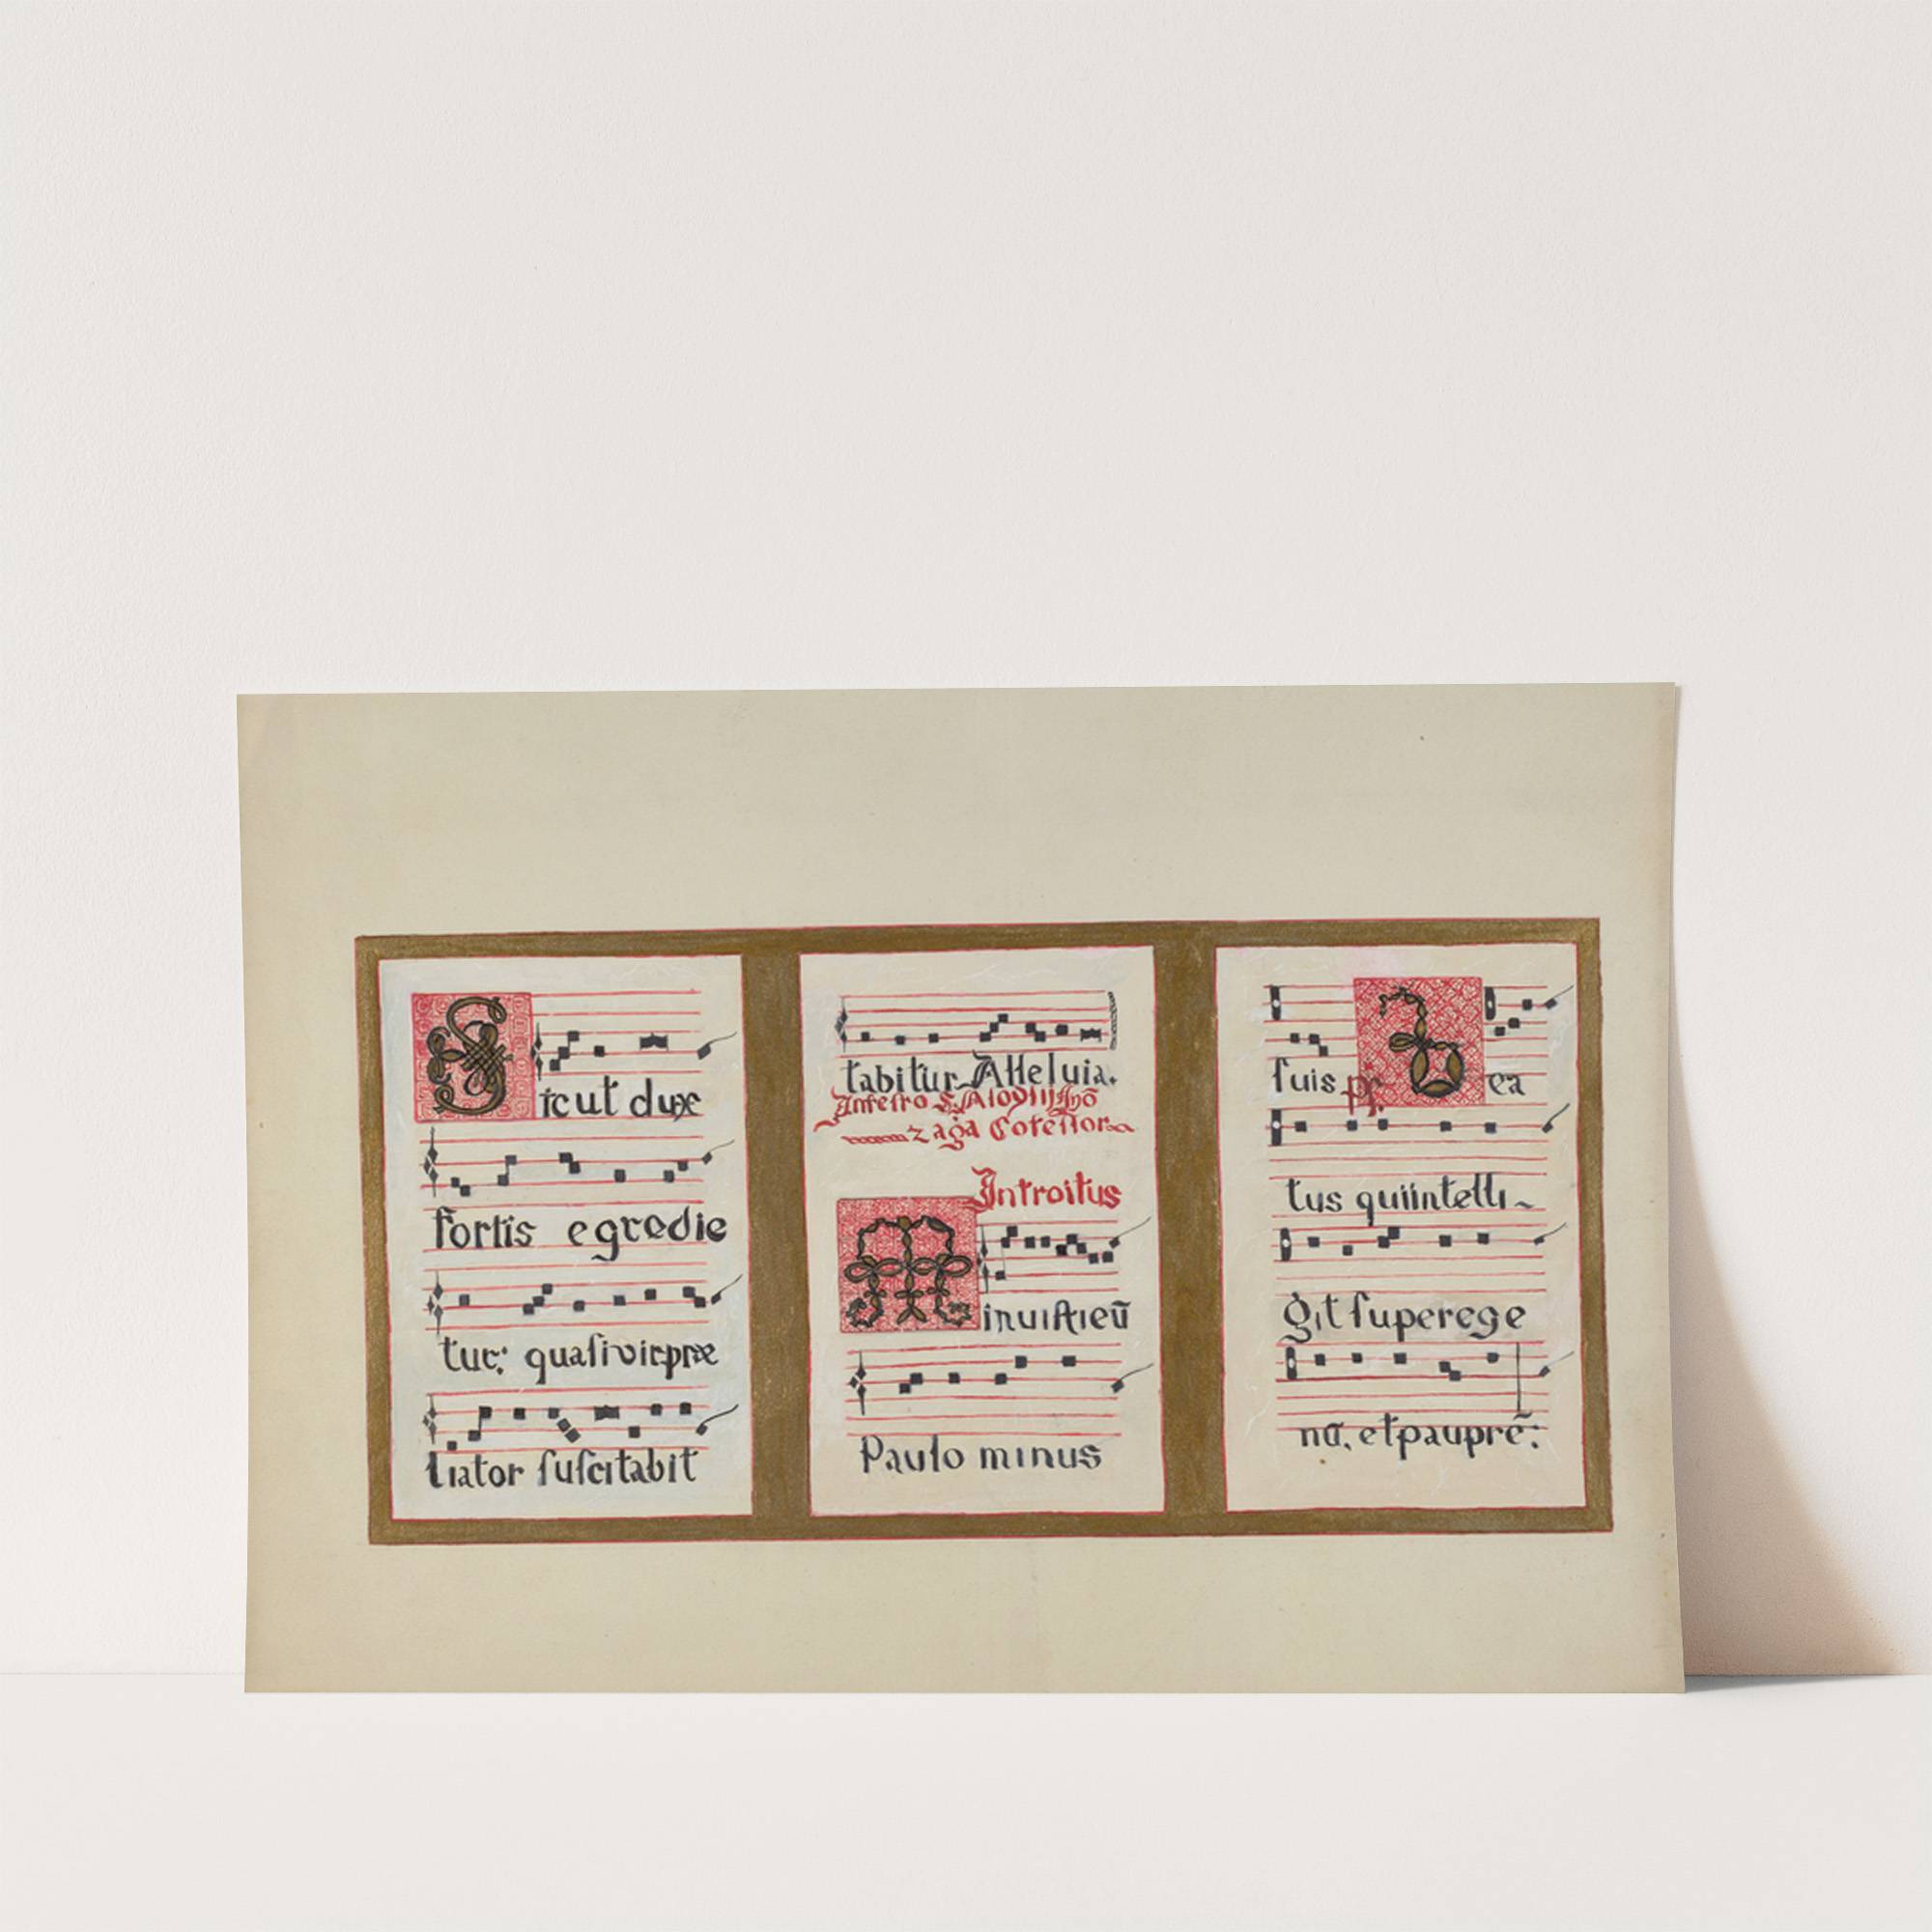 Sicut dux
fortis egredie
tur: quaſi vir præ
liator ſuſcitabit
tabitur Alleluia.
In feſto S. Aloyſij Gõ
zaga Cofeſſor
Introitus
Minuiſti eũ
Paulo minus
ſuis pſ. Bea
tus qui intelli~
git ſuper ege
nũ, et paupre͂: